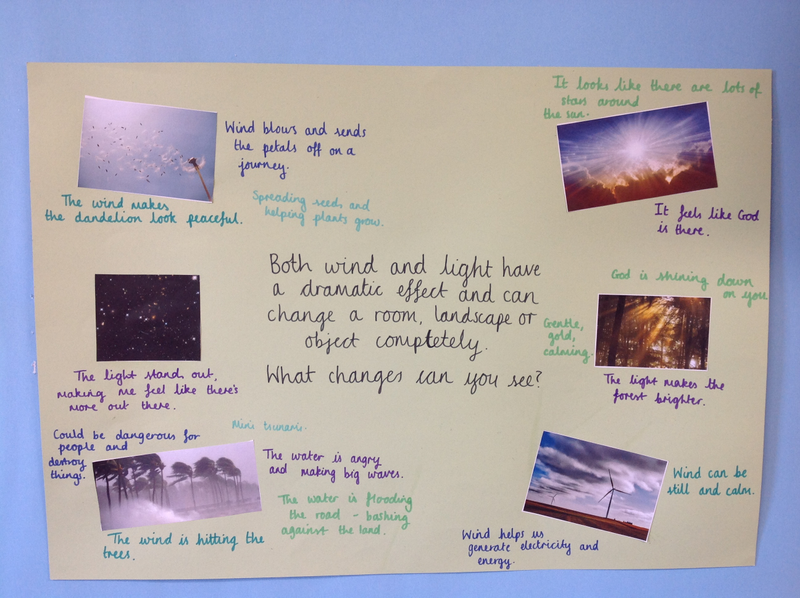 It looks like there are lots of
stars around
the sun.
Wind blows and sends
the petals off on a
journey.
The wind makes
the dandelion look peaceful.
Spreading seeds and
helping plants grow.
It feels like God
is there.
Both wind and light have
a dramatic effect and can
change a room, landscape or
object completely.
What changes can you see?
God is shining down
on you
Gentle,
gold,
calming.
The light makes the
forest brighter.
The light stands out,
making me feel like there's
more out there.
Could be dangerous for
people and
destroy
things.
Mini tsunami.
The water is angry
and making big waves.
The water is flooding
the road - bashing
against the land.
The wind is hitting the
trees.
Wind can be
still and calm.
Wind helps us
generate electricity and
energy.